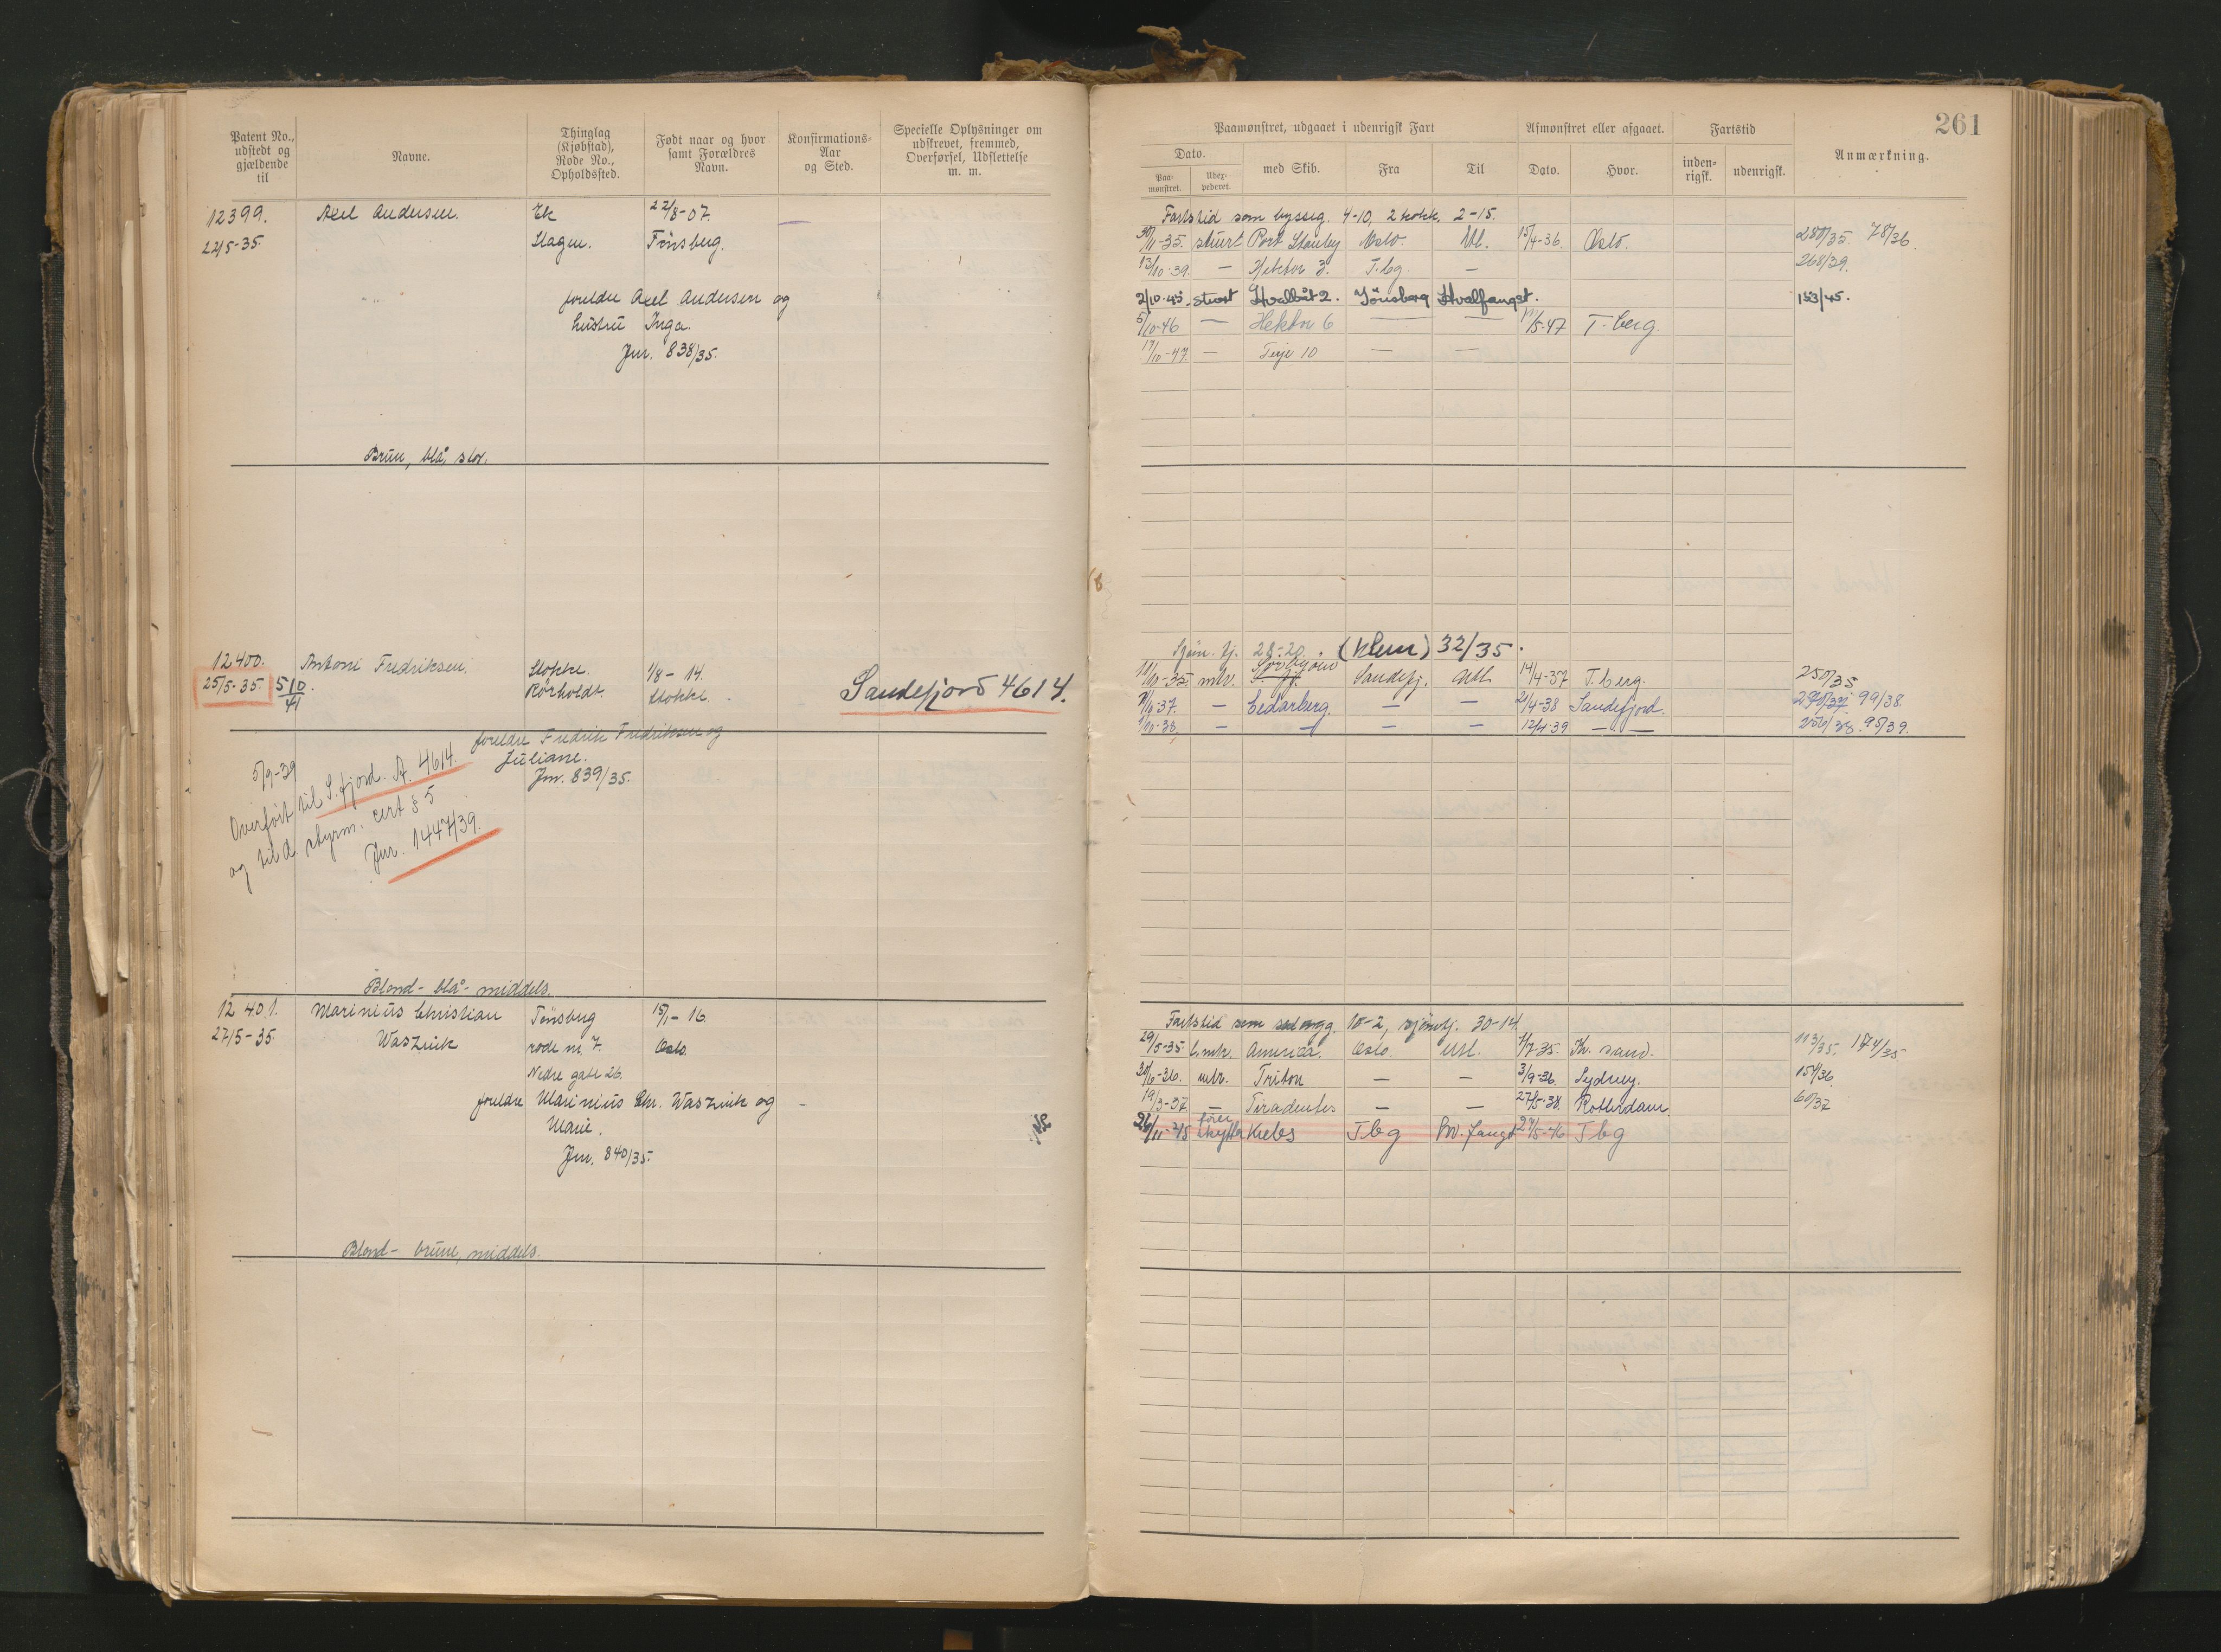 Patent No., udstedt og gjældende til
Navne.
Thinglag (Kjøbstad), Rode No., Opholdssted.
Født naar og hvor samt Forældres Navn.
Konfirmations-Aar og Sted.
Specielle Oplysninger om udskrevet, fremmed, Overførsel, Udslettelse m. m.
12399. Axel Andersen. Ek 22/8-07.
22/5-35. Slagen. Tönsberg.
foreldre Axel Andersen og
hustru Inga.
Jnr. 838/35.
Brun, blå, stor.
12400. Antoni Fredriksen. Stokke. 1/8-14.
25/5-35. 510/41. Rörholdt. Stokke. Sandefjord 4614.
foreldre Fredrik Fredriksen og
Juliane.
Jnr. 839/35.
5/9-39
Overført til S.fjord. A. 4614.
og til A styrm. cert § 5
Jnr. 1447/39.
Blond- blå- middels.
12401. Marinius Christian Tönsberg 15/1-16.
27/5-35. Waszink rode nr. 7. Oslo.
Nedre gate 26.
foreldre Marinius Chr. Waszink og
Marie.
Jnr. 840/35.
Blond- brune, middels.
261
Paamønstret, udgaaet i udenrigsk Fart
Afmønstret eller afgaaet.
Fartstid
Anmærkning.
Dato.
Paa-mønstret.
Udex-pederet.
med Skib.
Fra
Til
Dato.
Hvor.
inden-rigsk.
udenrigsk.
Fartstid som bysseg. 4-10, 2 kokk. 2-15.
30/11-35. stuert Port Stanley Oslo. Utl. 15/4-36 Oslo. 280/35. 78/36.
13/10-39. — Hektor 3. T.bg. — 268/39.
2/10-45. stuert Hvalbåt 2. Tönsberg Hvalfangst. 153/45.
5/10-46 — Hektor 6 — — /5-47 T.berg.
17/10-47. — Terje 10 — —
Sjøm. tj. 28-20. (Klem) 32/35.
Sörbyöen
11/10-35. mtr. Sandefj. Utl. 14/4-37 T.berg. 250/35
/10-37. — Cedarberg. — — 21/4-38 Sandefjord. 99/38.
1/10-38. — — — 12/4-39 — 95/39.
Fartstid som 10-2, sjömtj. 30-14.
29/5-35 l.mtr. America. Oslo. Utl. 1/7-35. Kr. sand. 113/35. 174/35
/6-36. mtr. Triton — — 3/9-36. Sydney. 154/36
19/3-37 — Tiradentes — — 27/5-38. Rotterdam. 60/37
fører
26/11-45 skytter Krebs Tbg hv.fangst 29/5-46 Tbg